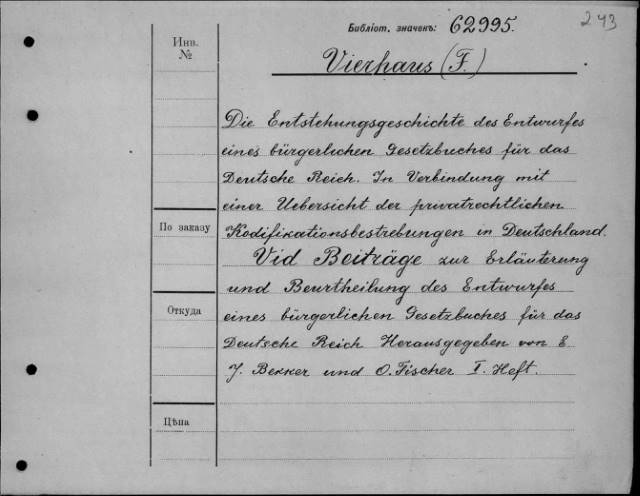 243
Библіот. значекъ: 62995.
Инв.
№
Vierhaus (F.)
Die Entstehungsgeschichte des Entwurfes
eines bürgerlichen Gesetzbuches für das
Deutsche Reich. In Verbindung mit
einer Uebersicht der privatrechtlichen
По заказу
Kodifikationsbestrebungen in Deutschland.
Vid Beiträge zur Erläuterung
und Beurtheilung des Entwurfes
Откуда
eines bürgerlichen Gesetzbuches für das
Deutsche Reich Herausgegeben von E
J. Bekker und O. Fischer I. Heft.
Цѣна